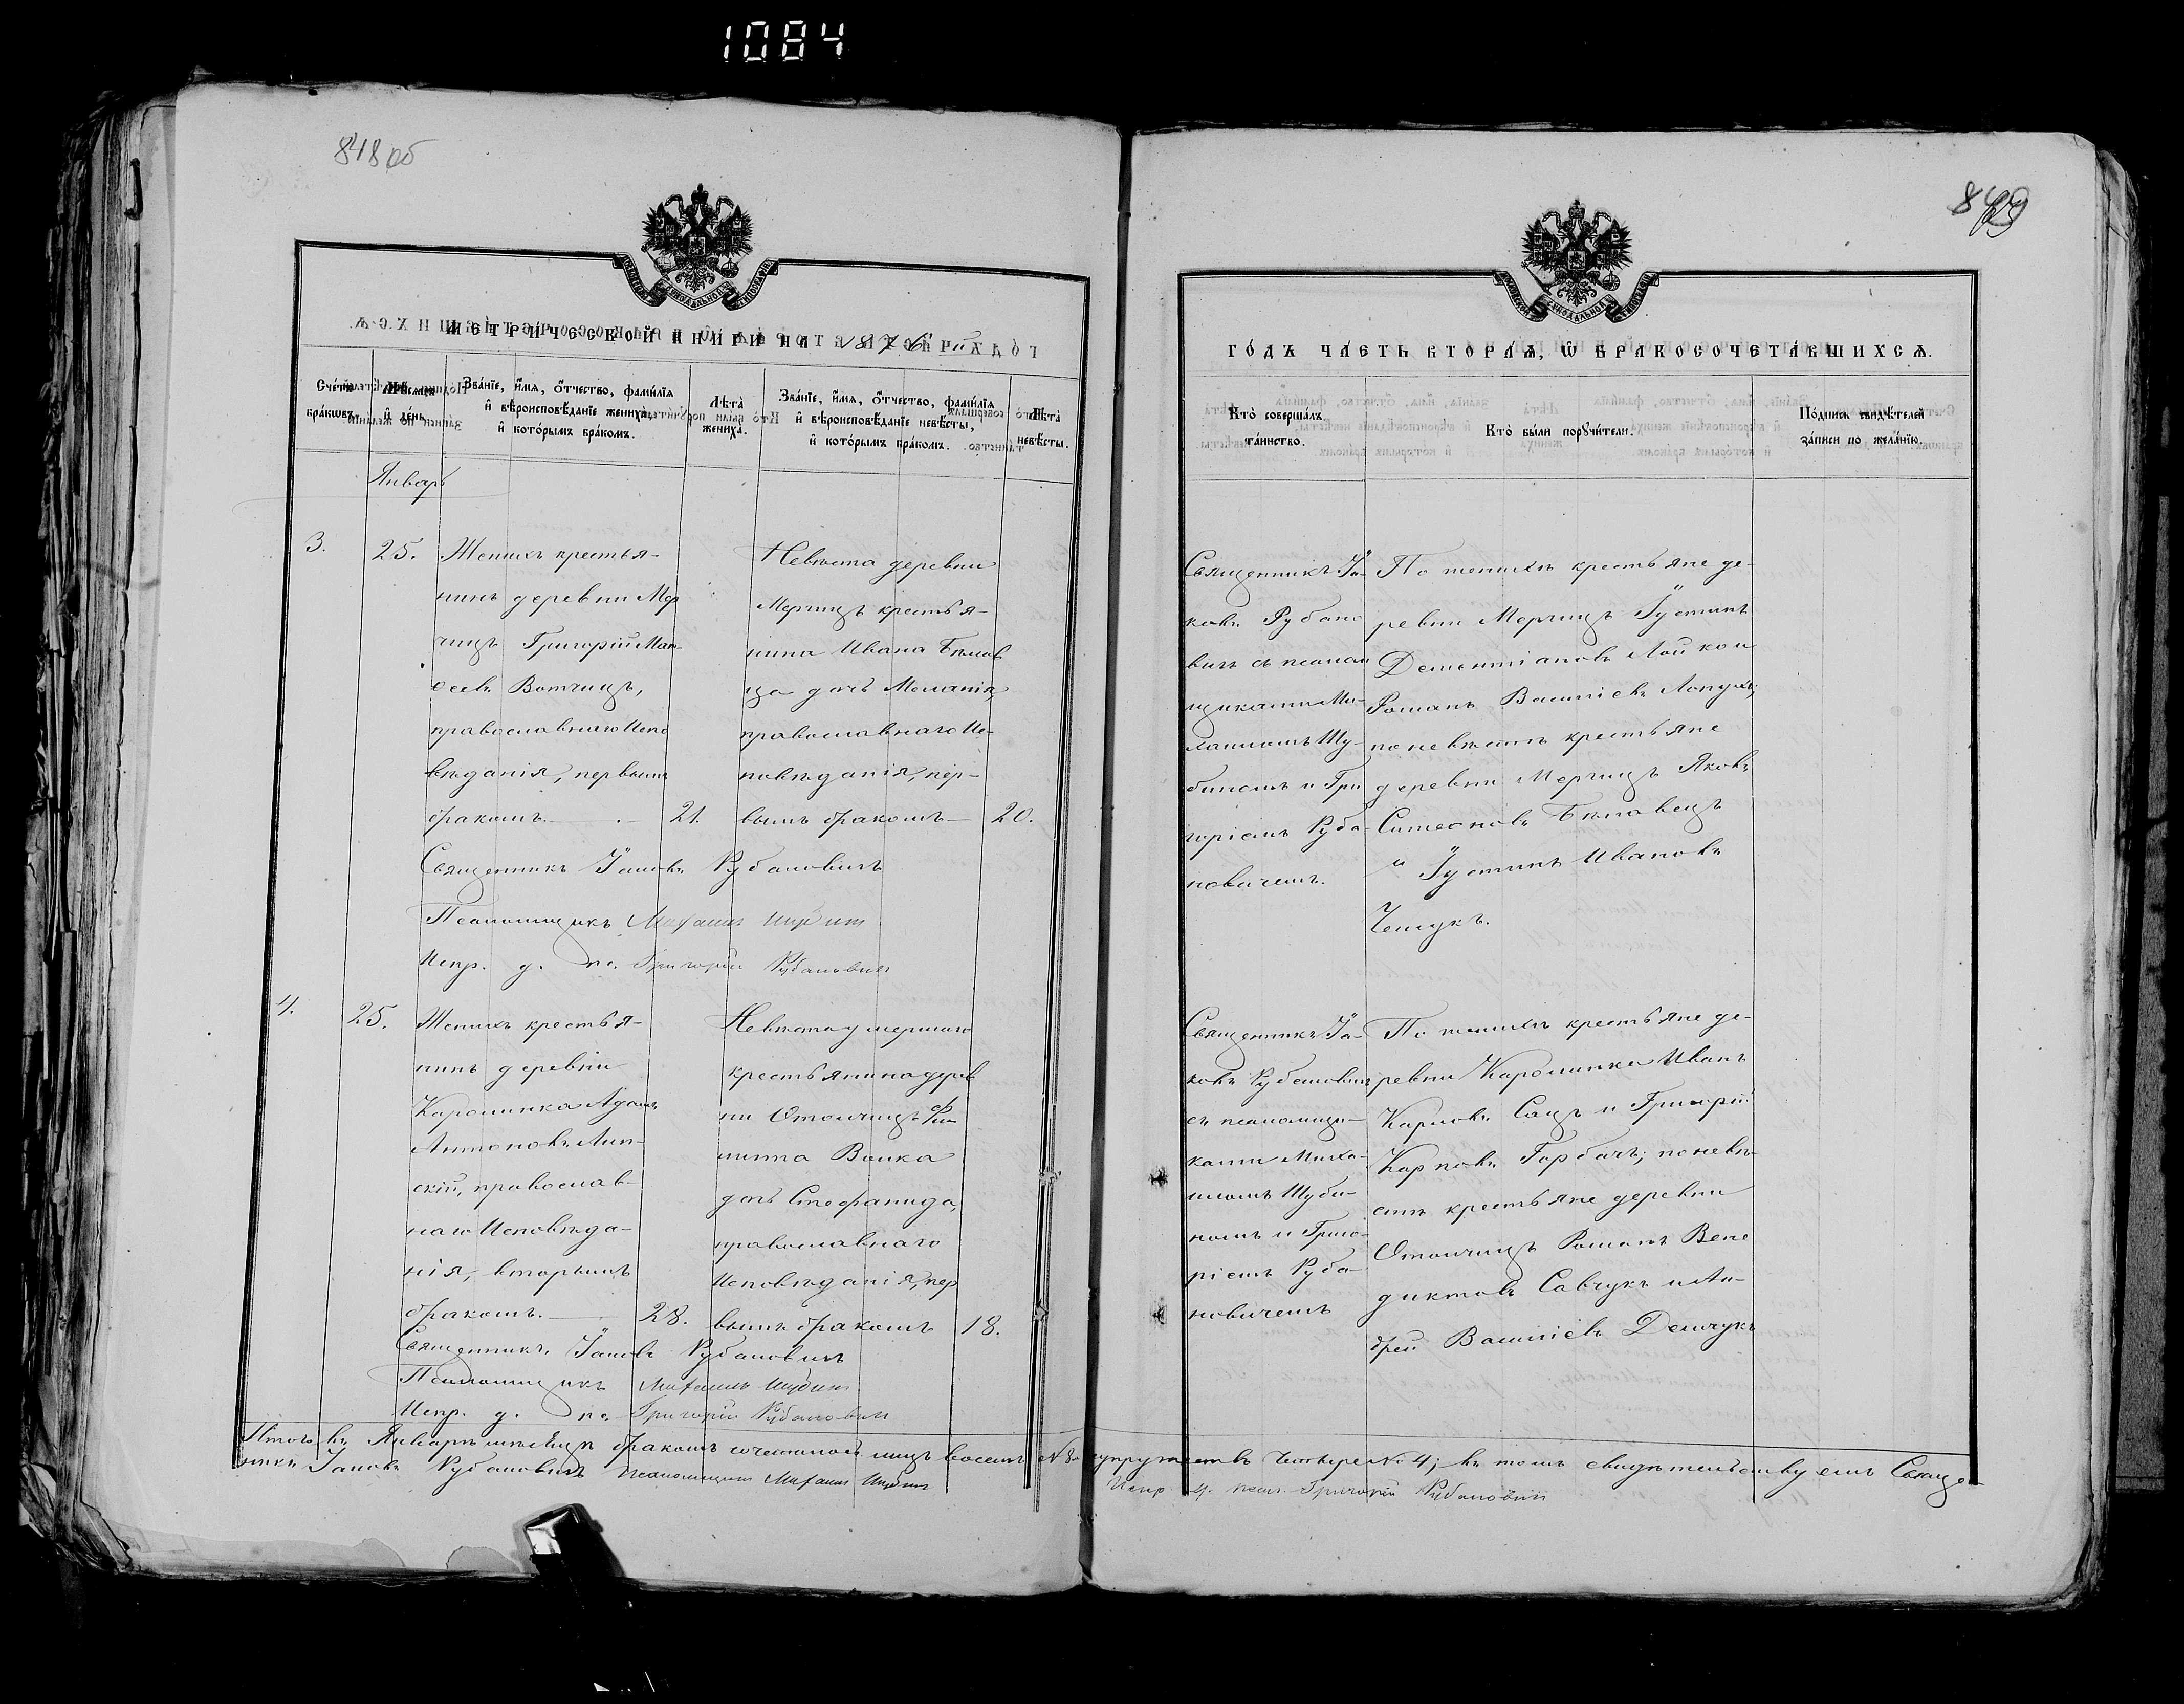 1084
848 об
849
МЕТРИ́ЧЕСКОЙ КНИ́ГИ НА 1876 й
Сче́тъ бра́ковъ.
Мѣ́сяцъ и҆ де́нь.
Зва́нїе, и҆́мя, ѻ҆́тчество, фами́лїя
и҆ вѣроисповѣ́данїе жениха̀,
и҆ кото́рымъ бра́комъ.
Лѣ́та жениха̀.
Зва́нїе, и҆́мя, ѻ҆́тчество, фами́лїя
и҆ вѣроисповѣ́данїе невѣ́сты,
и҆ кото́рымъ бра́комъ.
Лѣ́та невѣ́сты.
Январь
3.
25.
Женихъ крестья-
нинъ деревни Мер
чицъ Григорій Мат-
ѳеевъ Вотчицъ,
православнаго Испо
вѣданія, первымъ
бракомъ.
21.
Невѣста деревни
Мерчицъ крестья-
нина Ивана Бѣлов
ца дочь Меланія,
православнаго Ис-
повѣданія, пер-
вымъ бракомъ
20.
Священникъ Іаковъ Рубановичъ
Псаломщикъ Михаилъ Шубин
Испр. д. пс. Григорій Рубанович
4.
25.
Женихъ крестья-
нинъ деревни
Каролинка Адамъ
Антоновъ Лип-
скій, православ-
наго Исповѣда-
нія, вторымъ
бракомъ.
28.
Невѣста умершаго
крестьянина дерев
ни Отолчицъ Фи-
липпа Волка
дочь Стефанида,
православнаго
Исповѣданія, пер
вымъ бракомъ
18.
Священникъ Іаковъ Рубановичъ
Псаломщикъ Михаилъ Шубин
Испр. д. пс. Григорій Рубанович
ГО́ДЪ ЧА́СТЬ ВТОРА́Я, Ѡ҆ БРАКОСОЧЕТА́ВШИХСЯ.
Кто̀ соверша́лъ
та́инство.
Кто̀ бы́ли порꙋчи́тели.
По́дпись свидѣ́телей
за́писи по жела́нїю.
Священникъ Іа-
ковъ Рубано
вичъ съ псалом
щиками Ми-
хаиломъ Шу-
бинымъ и Гри
горіемъ Руба
новичемъ.
По женихѣ крестьяне де-
ревни Мерчицъ Іустинъ
Дементіановъ Лойко и
Романъ Василіевъ Лопухъ;
по невѣстѣ крестьяне
деревни Мерчицъ Яковъ
Симеоновъ Бѣлавецъ
и Іустинъ Ивановъ
Священникъ Іа-
ковъ Рубановичъ
съ псаломщи-
ками Миха-
иломъ Шуби-
нымъ и Григо-
ріемъ Руба-
новичемъ
По женихѣ крестьяне де-
ревни Каролинка Иванъ
Карловъ Сацъ и Григорій
Карповъ Горбачъ; по невѣ-
стѣ крестьяне деревни
Отолчицъ Романъ Вене
диктовъ Савчукъ и Ан-
дрей Василіевъ Демчукъ
Итого въ Январѣ мѣсяцѣ бракомъ сочеталось лицъ восемь № 8 супружествъ Четыре № 4; въ томъ свидѣтельствуемъ Священ-
никъ Іаковъ Рубановичъ псаломщикъ Михаилъ Шубин Испр. д. псал. Григорій Рубанович